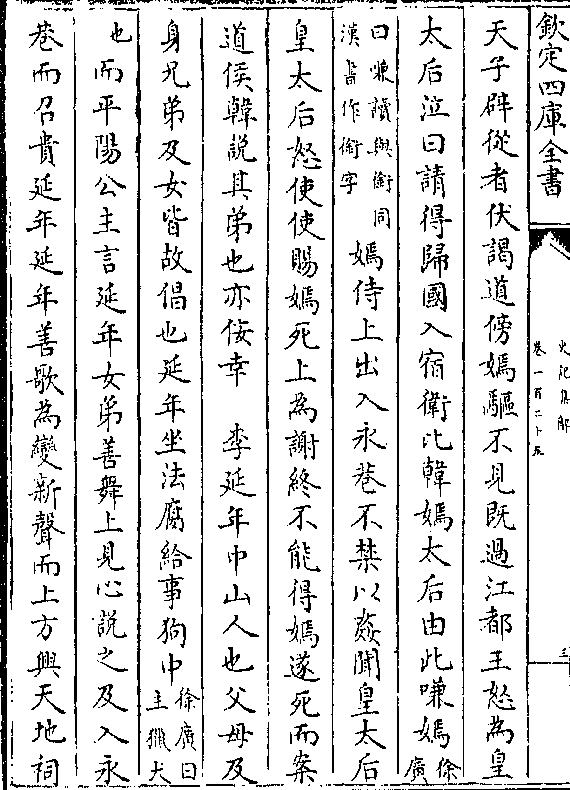 欽定四庫全書
史記集解
卷一百二十五
三
天子辟從者伏謁道傍嫣驅不見既過江都王怒為皇
太后泣曰請得歸國入宿衛比韓嫣太后由此嗛嫣徐廣
曰嗛讀與銜同漢書作銜字嫣侍上出入永巷不禁以姦聞皇太后
皇太后怒使使賜嫣死上為謝終不能得嫣遂死而案
道侯韓說其弟也亦佞幸　李延年中山人也父母及
身兄弟及女皆故倡也延年坐法腐給事狗中徐廣曰主獵犬
也而平陽公主言延年女弟善舞上見心說之及入永
巷而召貴延年延年善歌為變新聲而上方興天地祠